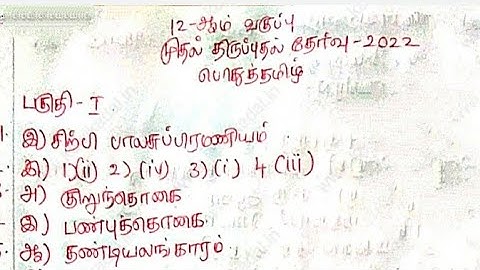 12-ஆம் வகுப்பு
முதல் திருப்புதல் தேர்வு - 2022
பொதுத்தமிழ்
பகுதி - I
1. இ) சிற்பி பாலசுப்பிரமணியம்
ஈ) 1)(ii) 2) (iv) 3) (i) 4 (iii)
அ) குறுந்தொகை
இ) பண்புத்தொகை
ஆ) தண்டியலங்காரம்